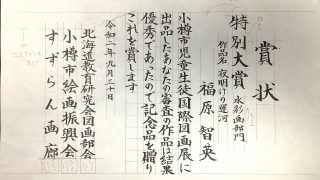 賞状
特別大賞 水彩画部門
作品名 夜明けの運河
福原智英
小樽市児童生徒国際図画展に
出品したあなたの審査の作品は結果
優秀であったので記念品を贈り
これを賞します
令和一年九月三十日
北海道教育研究会図画部会
小樽市絵画振興会
すずらん画廊